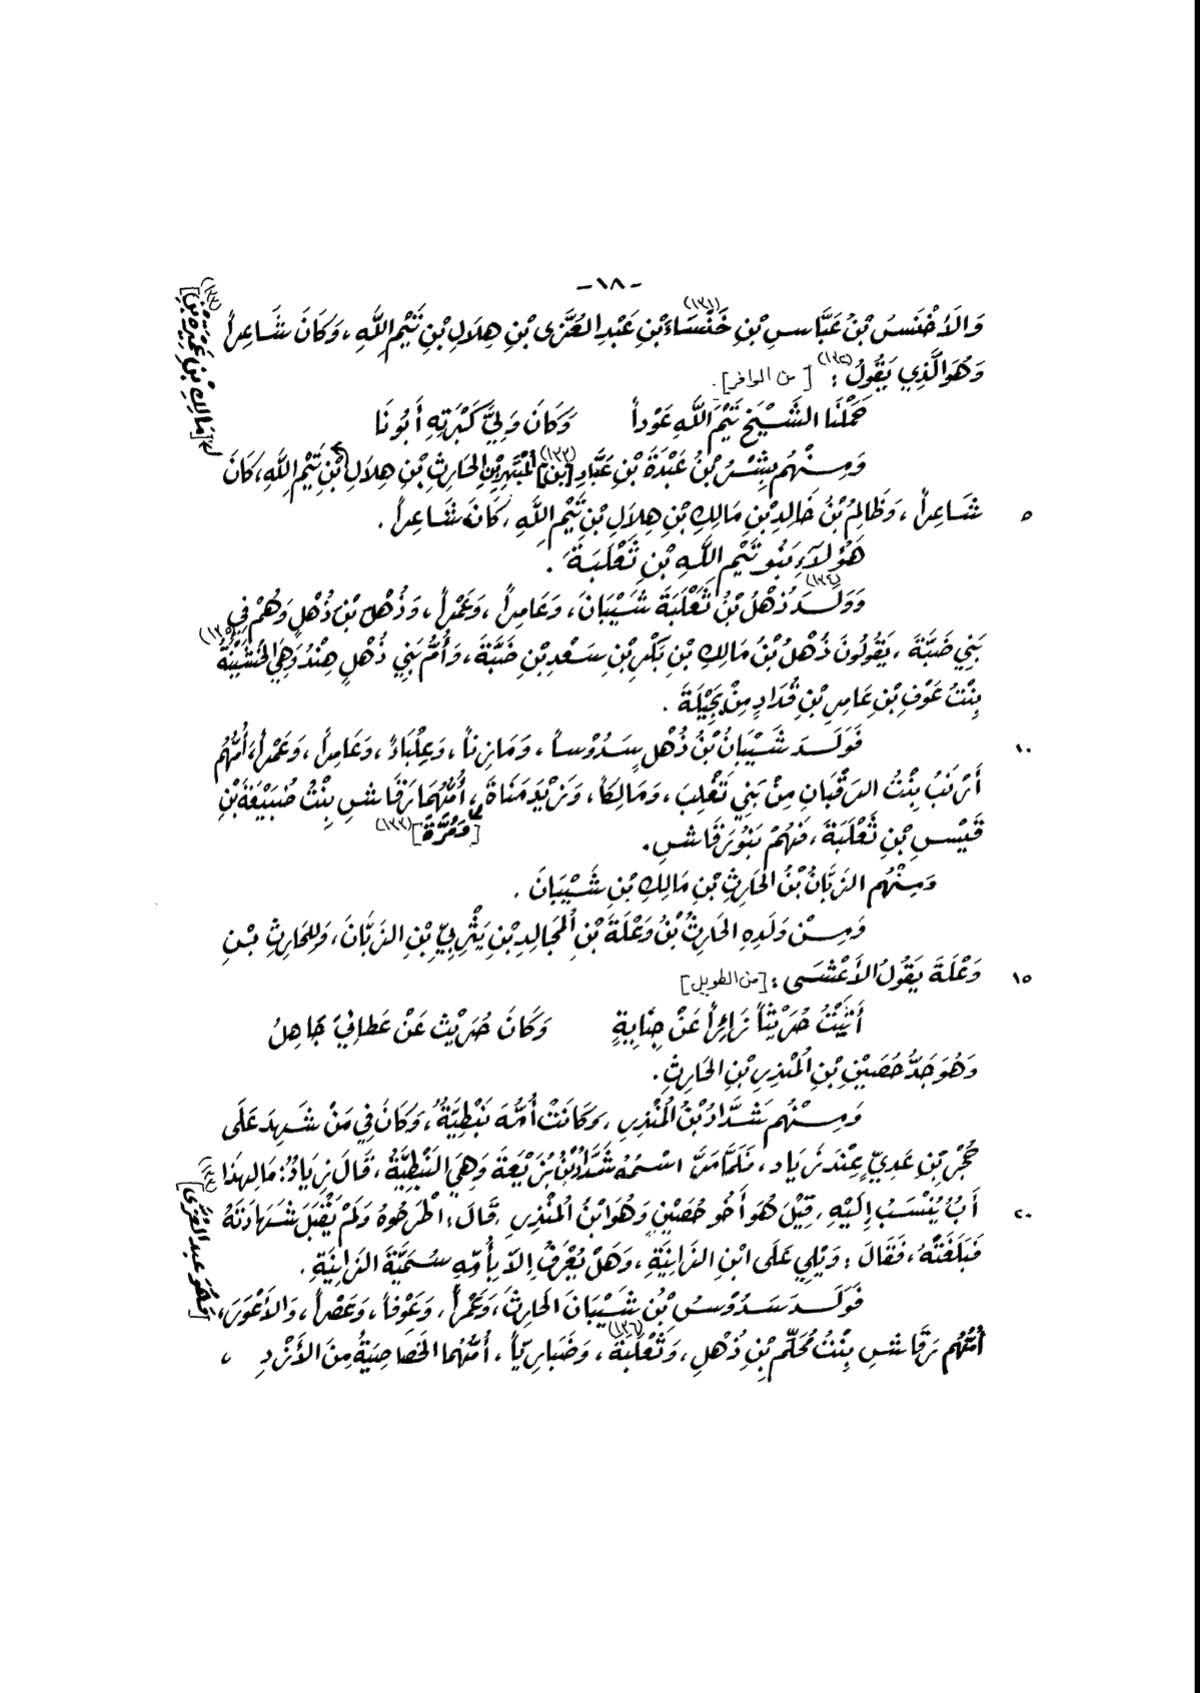 -١٨-
وَالأَخْنَسُ بْنُ عَبَّاسِ بْنِ خَنْسَاءَ (١٣١) بْنِ عَبْدِ العُزَّى بْنِ هِلَالِ بْنِ تَيْمِ اللَّهِ، وَكَانَ شَاعِراً
وَهُوَ الَّذِي يَقُولُ (١٣٢): [من الوافر].
حَمَلْنَا الشَّيْخَ تَيْمَ اللَّهِ عَوْداً وَكَانَ وَلِيَّ كَبْرَتِهِ أَبُونَا
وَمِنْهُم بِشْرُ بْنُ عَبْدَةَ بْنِ عَبَّادِ [بْنِ] (١٣٣) الحَارِثِ بْنِ هِلَالِ بْنِ تَيْمِ اللَّهِ، كَانَ
٥ شَاعِراً، وَظَالِمُ بْنُ خَالِدِ بْنِ مَالِكِ بْنِ هِلَالِ بْنِ تَيْمِ اللَّهِ، كَانَ شَاعِراً.
هَؤُلَاءِ بَنُو تَيْمِ اللَّهِ بْنِ ثَعْلَبَةَ.
وَوَلَدَ ذُهْلُ بْنُ ثَعْلَبَةَ (١٣٤) شَيْبَانَ، وَعَامِراً، وَعَمْراً، وَذُهْلَ بْنَ ذُهْلٍ وَهُمْ فِي
بَنِي ضَبَّةَ، يَقُولُونَ ذُهْلُ بْنُ مَالِكِ بْنِ بَكْرِ بْنِ سَعْدِ بْنِ ضَبَّةَ، وَأُمُّ بَنِي ذُهْلٍ هِنْدُ وَهِيَ الخُشَيْنَةُ
بِنْتُ عَوْفِ بْنِ عَامِرِ بْنِ قُدَادٍ مِنْ بَجِيْلَةَ.
١٠ فَوَلَدَ شَيْبَانُ بْنُ ذُهْلٍ سَدُوْساً، وَمَازِناً، وَعِلْبَاءَ، وَعَامِراً، وَعَمْراً، أُمُّهُم
أَرْنَبُ بِنْتُ الرَّقْبَانِ مِنْ بَنِي تَغْلِبَ، وَمَالِكاً، وَزَيْدَ مَنَاةَ، أُمُّهُمَا رَقَاشِ بِنْتُ ضُبَيْعَةَ بْنِ
قَيْسِ بْنِ ثَعْلَبَةَ، فَهُمْ بَنُو رَقَاشِ. [وَمُرَّةَ]
وَمِنْهُم الزَبَّانُ بْنُ الحَارِثِ بْنِ مَالِكِ بْنِ شَيْبَانَ.
وَمِنْ وَلَدِهِ الحَارِثُ بْنُ وَعْلَةَ بْنِ المُجَالِدِ بْنِ يَثْرِبِيِّ بْنِ الزَبَّانَ، وَلِلحَارِثِ بْنِ
١٥ وَعْلَةَ يَقُولُ الأَعْشَى: [من الطويل]
أَتَيْتُ حُرَيْثاً زَائِراً عَنْ جِنَايَةٍ وَكَانَ حُرَيْثٌ عَنْ عَطائِي جَاهِلُ
وَهُوَ جَدُّ حُصَيْنِ بْنِ المُنْذِرِ بْنِ الحَارِثِ.
وَمِنْهُم شَدَّادُ بْنُ المُنْذِرِ، وَكَانَتْ أُمُّهُ نَبْطِيَّةً، وَكَانَ فِي مَنْ شَهِدَ عَلَى
حُجْرِ بْنِ عَدِيٍّ عِنْدَ زِيَاد، فَلَمَّا مَرَّ اسْمُهُ شَدَّادُ بْنُ بَزِيْعَةَ وَهِيَ النَّبْطِيَّةُ، قَالَ زِيَادُ: مَا لِهَذَا
٢٠ أَبٌ يُنْسَبُ إِلَيْهِ، قِيْلَ هُوَ أَخُو حُصَيْنٍ وَهُوَ ابْنُ المُنْذِرِ، قَالَ: اطْرَحُوهُ وَلَمْ يَقْبَلْ شَهَادَتَهُ
فَبَلَغَتْهُ، فَقَالَ: وَيْلِي عَلَى ابْنِ الزَانِيَةِ، وَهَلْ يُعْرَفُ إِلاّ بِأُمِّهِ سُمَيَّةَ الزَانِيَةِ.
فَوَلَدَ سَدُوْسُ بْنُ شَيْبَانَ الحَارِثَ، وَعَمْراً، وَعَوْفاً، وَعَصْراً، وَالأَعْوَرَ،
أُمُّهُم رَقَاشِ بِنْتُ مُحَلَّمِ بْنِ ذُهْلٍ، وَثَعْلَبَةَ (١٣٦)، وَضَبَارِيّاً، أُمُّهُما الخَصَاصِيَةُ مِنَ الأَزْدِ،
[وَهُوَ عبد العُزَّى]